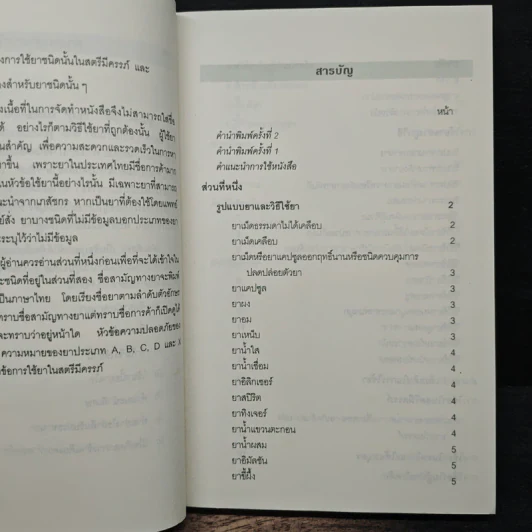 งการใช้ยาชนิดนั้นในสตรีมีครรภ์ และ
องสำหรับยาชนิดนั้น ๆ
งเนื้อที่ในการจัดทำหนังสือจึงไม่สามารถใส่ชื่อ
ด้ อย่างไรก็ตามวิธีใช้ยาที่ถูกต้องนั้น ผู้ใช้ยา
นสำคัญ เพื่อความสะดวกและรวดเร็วในการหา
ยาขึ้น เพราะยาในประเทศไทยมีชื่อการค้ามาก
นหัวข้อใช้ยานี้อย่างไรนั้น มีเฉพาะยาที่สามารถ
นะนำจากเภสัชกร หากเป็นยาที่ต้องใช้โดยแพทย์
ย์สั่ง ยาบางชนิดที่ไม่มีข้อมูลบอกประเภทของยา
ระบุไว้ว่าไม่มีข้อมูล
ผู้อ่านควรอ่านส่วนที่หนึ่งก่อนเพื่อที่จะได้เข้าใจใน
ะชนิดที่อยู่ในส่วนที่สอง ชื่อสามัญทางยาจะพิมพ์
เป็นภาษาไทย โดยเรียงชื่อยาตามลำดับตัวอักษร
ทราบชื่อสามัญทางยาแต่ทราบชื่อการค้าก็เปิดดูได้
จะทราบว่าอยู่หน้าใด หัวข้อความปลอดภัยของ
ความหมายของยาประเภท A, B, C, D และ X
ข้อการใช้ยาในสตรีมีครรภ์
สารบัญ
หน้า
คำนำพิมพ์ครั้งที่ 2
คำนำพิมพ์ครั้งที่ 1
คำแนะนำการใช้หนังสือ
ส่วนที่หนึ่ง
รูปแบบยาและวิธีใช้ยา 2
ยาเม็ดธรรมดาไม่ได้เคลือบ 2
ยาเม็ดเคลือบ 2
ยาเม็ดหรือยาแคปซูลออกฤทธิ์นานหรือชนิดควบคุมการ
ปลดปล่อยตัวยา 3
ยาแคปซูล 3
ยาผง 3
ยาอม 3
ยาเหน็บ 3
ยาน้ำใส 4
ยาน้ำเชื่อม 4
ยาอิลิกเซอร์ 4
ยาสปิริต 4
ยาทิงเจอร์ 4
ยาน้ำแขวนตะกอน 4
ยาน้ำผสม 5
ยาอิมัลชัน 5
ยาขี้ผึ้ง 5